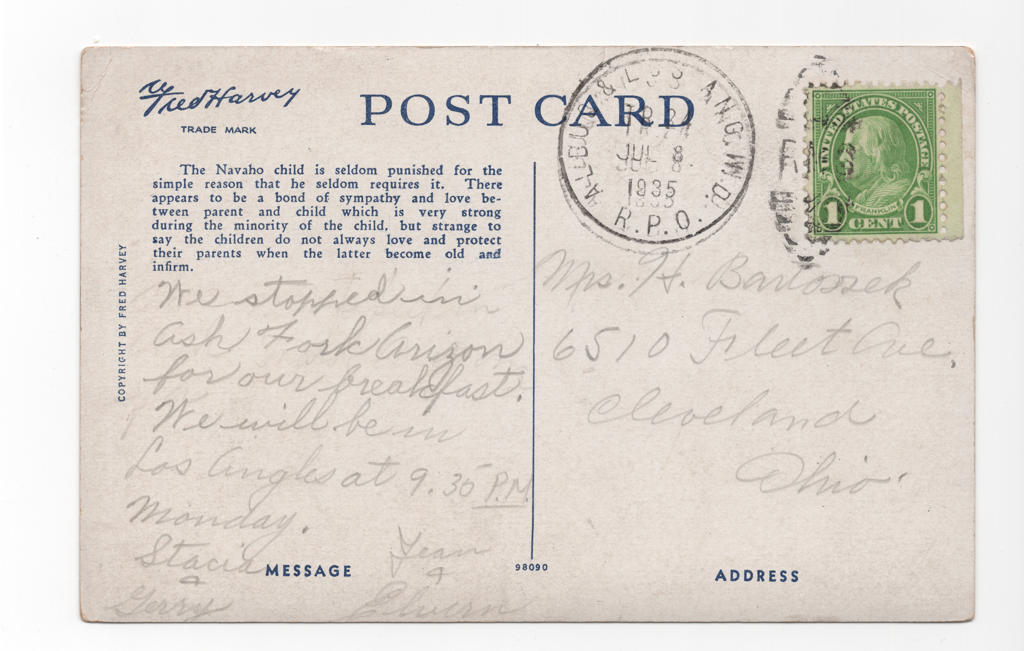 Fred Harvey
TRADE MARK
POST CARD
ALBUQ & LOS ANG. W.D.
TR 24
JUL 8
1935
R.P.O.
UNITED STATES POSTAGE
FRANKLIN
1 CENT 1
The Navaho child is seldom punished for the
simple reason that he seldom requires it. There
appears to be a bond of sympathy and love be-
tween parent and child which is very strong
during the minority of the child, but strange to
say the children do not always love and protect
their parents when the latter become old and
infirm.
COPYRIGHT BY FRED HARVEY
We stopped in
Ash Fork Arizon
for our breakfast.
We will be in
Los Angles at 9.35 P.M.
Monday.
Stacia Jean
+ +
Gerry Elvern
MESSAGE
98090
Mrs. H. Bartossek
6510 Fleet Ave,
Cleveland
Ohio.
ADDRESS